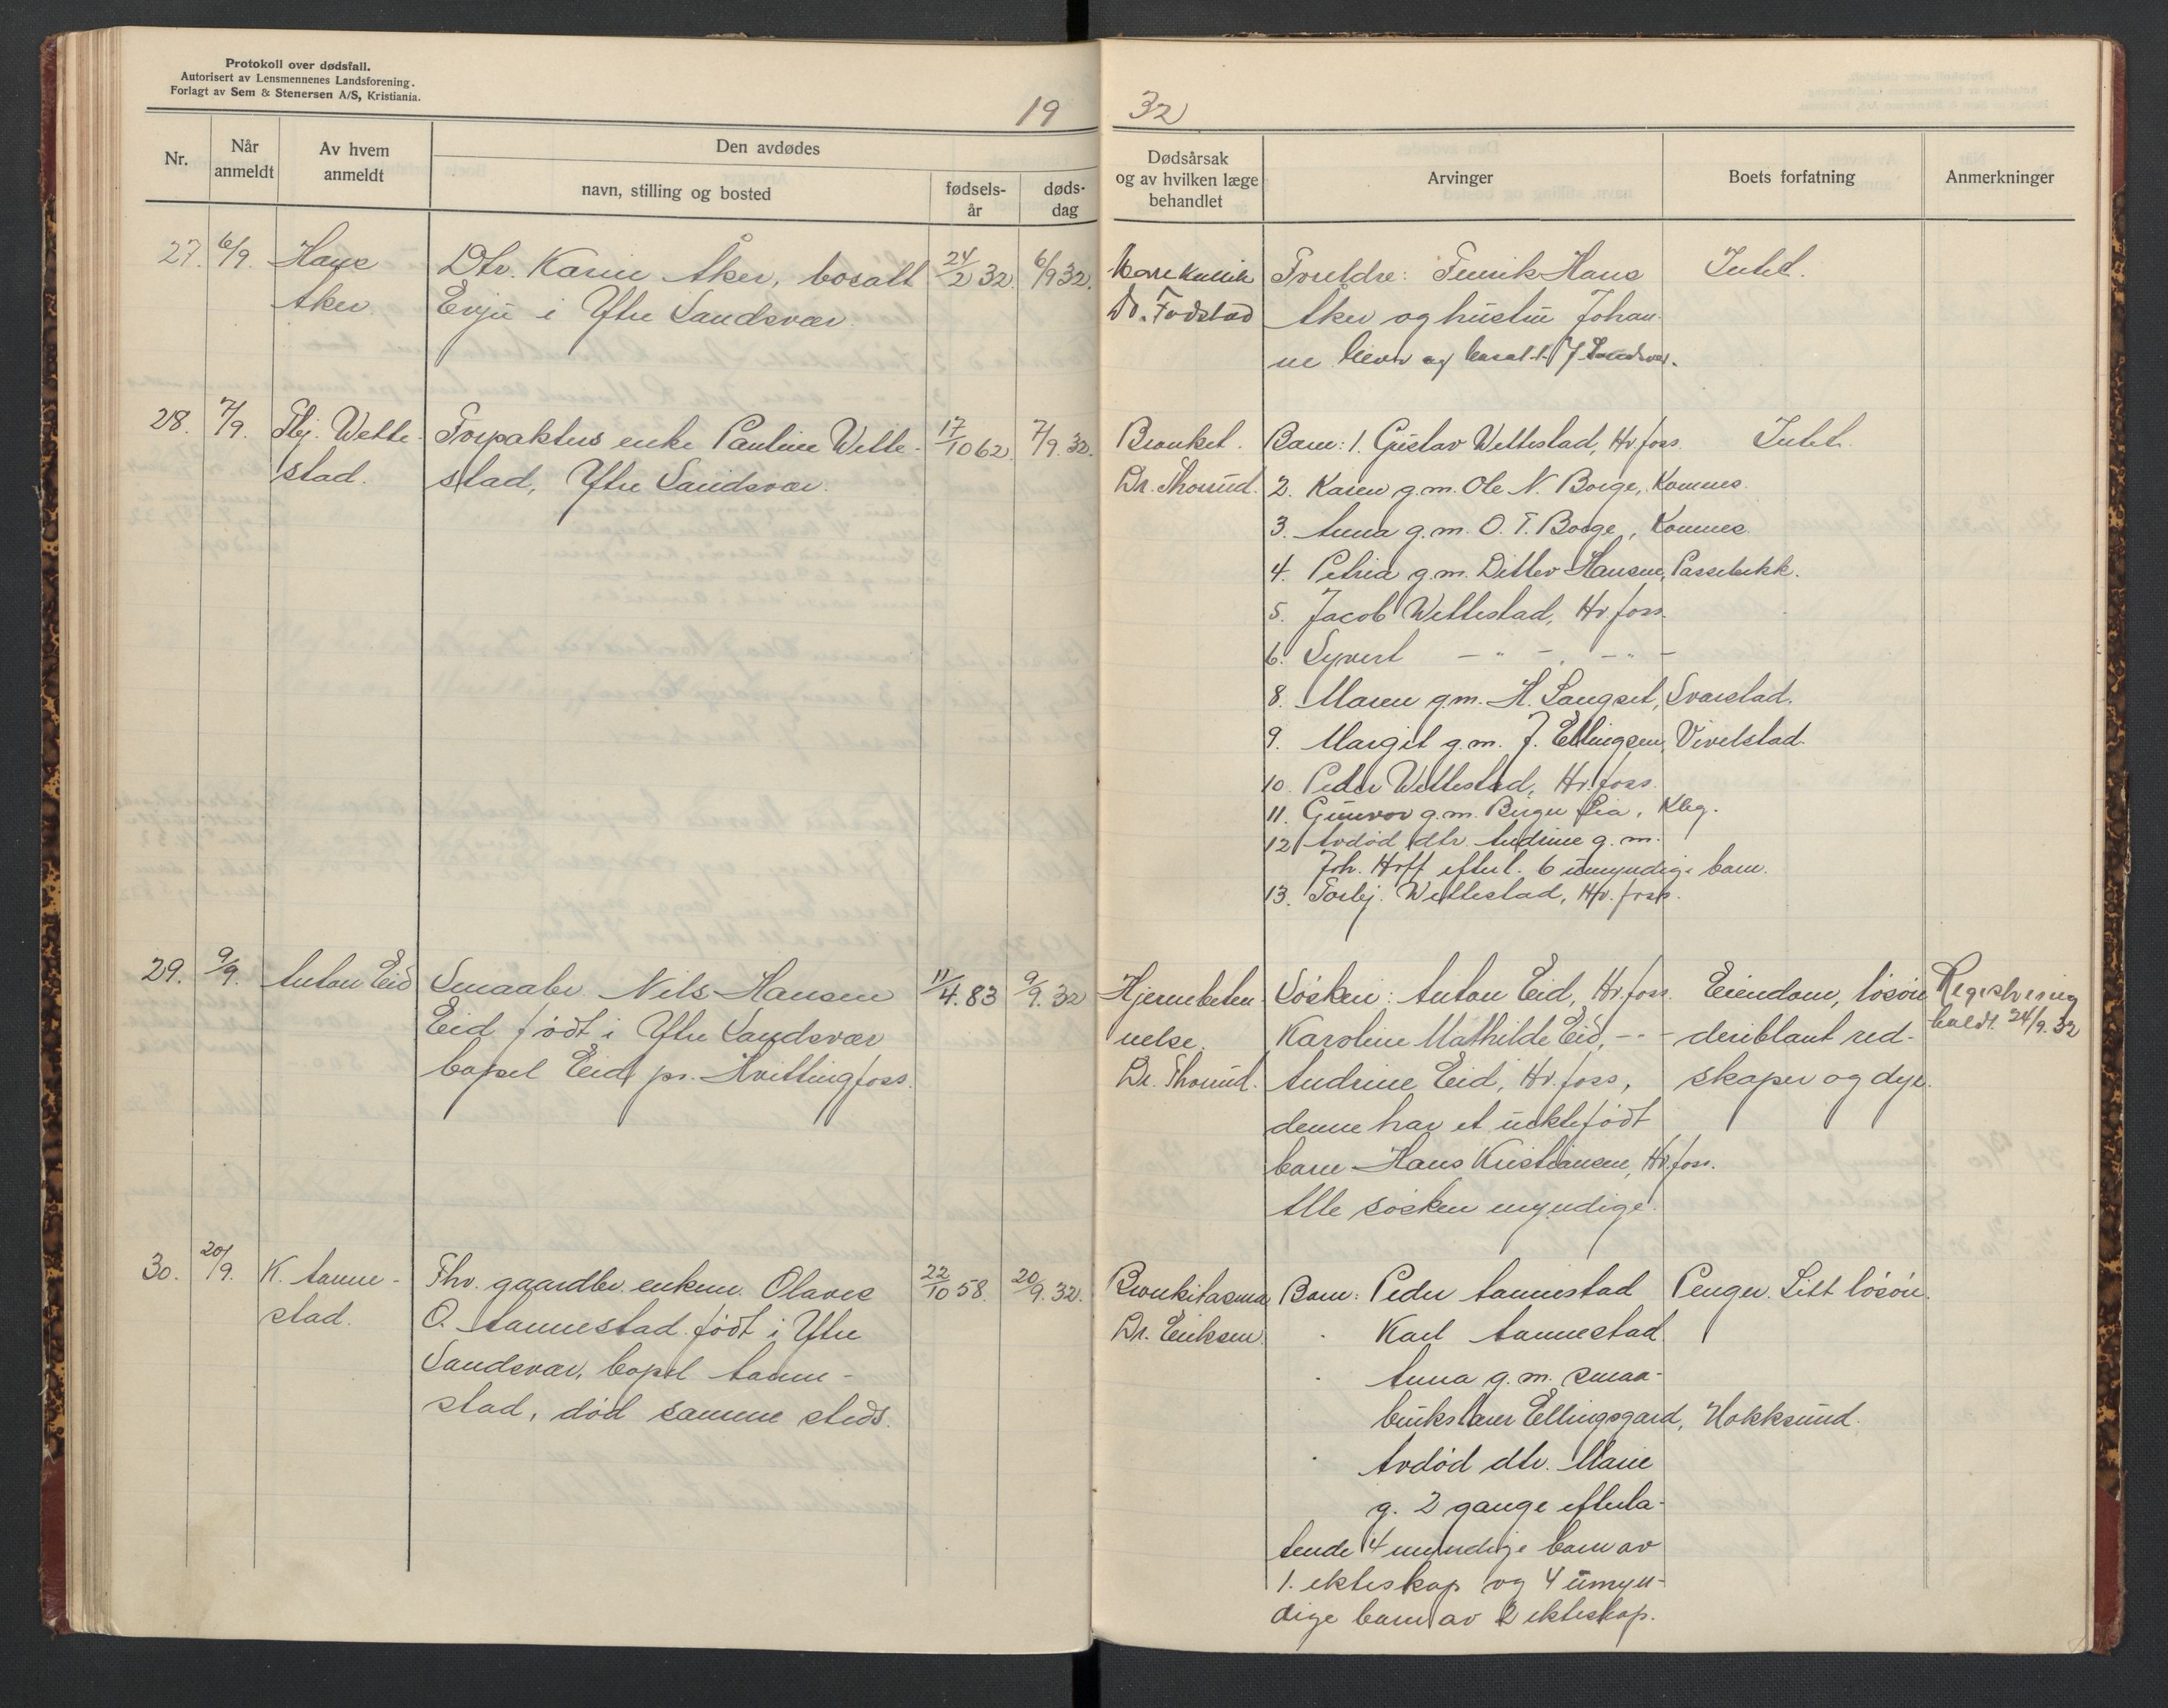 Protokoll over dødsfall.
Autorisert av Lensmennenes Landsforening.
Forlagt av Sem & Stenersen A/S, Kristiania.
19 32
Nr.
Når anmeldt
Av hvem anmeldt
Den avdødes
navn, stilling og bosted
fødsels-år
døds-dag
Dødsårsak og av hvilken læge behandlet
Arvinger
Boets forfatning
Anmerkninger
27. 6/9. Hans Dtr. Karin Åker, bosatt 24/2 32. 6/9 32. Foreldre: Hans Intet.
Åker. Evju i Ytre Sandsvær. Dr. Fodstad Åker og hustru Johan-
ne
28. 7/9. Tbj. Wette- Forpakters enke Pauline Wette- 17/10 62. 7/9. 32. Bronket. Barn: 1. Gustav Wettestad, Hv.foss. Intet.
stad. stad, Ytre Sandsvær. Dr. Thorud. 2. Karen g.m. Ole N. Borge, Komnes.
3. Anna g.m. O. T. Borge, Komnes.
4. Petrea g.m. Ditlev Hansen, Passebekk.
5. Jacob Wettestad, Hv.foss.
6. Syvert — " — . — " —
8. Maren g.m. H. Langset, Svarstad.
9. Margit g.m. J. Ellingsen, Vivelstad.
10. Peder Wettestad, Hv.foss.
11. Gunvor g.m. Birger Lia, Kbg.
12. Avdød dtr. Andrine g.m.
Joh. Hoff efterl. 6 umyndige barn.
13. Torbj. Wettestad, Hv. foss.
29. 9/9. Anton Eid Smaabr. Nils Hansen 11/4. 83 9/9. 32 Hjernebeten- Søsken: Anton Eid, Hv.foss. Eiendom, løsøre Registrering
Eid født i Ytre Sandsvær nelse. Karoline Mathilde Eid, - " - deriblant red- holdt 24/9. 32
bopel Eid pr. Hvittingfoss. Dr. Thorud. Andrine Eid, Hv. foss, skaper og dyr.
denne har et uektefødt
barn Hans Kristiansen, Hv.foss.
Alle søsken myndige.
30. 20/9. K. Aanne- Fhv. gaardbr. enkem. Olaves 22/10 58. 20/9. 32. Bronkitasma Barn: Peder Aannestad Penger. Litt løsøre.
stad. O. Aannestad født i Ytre Dr. Eriksen. " Karl Aannestad
Sandsvær, bopel Aanne- " Anna g.m. smaa-
stad, død samme steds. bruks Ellingsgard, Hokksund.
" Avdød dtr. Marie
g. 2 gange efterla-
tende 4 myndige barn av
1. ekteskap og 4 umyn-
dige barn av 2 ekteskap.